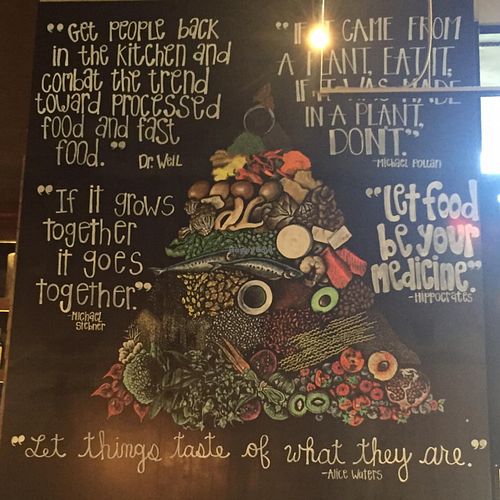 "Get people back
in the kitchen and
combat the trend
toward processed
food and fast
food."
Dr. Weil
"If it came from
a plant, eat it,
if it was made
in a plant,
don't."
-Michael Pollan
"If it grows
together
it goes
together."
-Michael
Stebner
"Let food
be your
medicine."
-Hippocrates
"Let things taste of what they are."
-Alice Waters